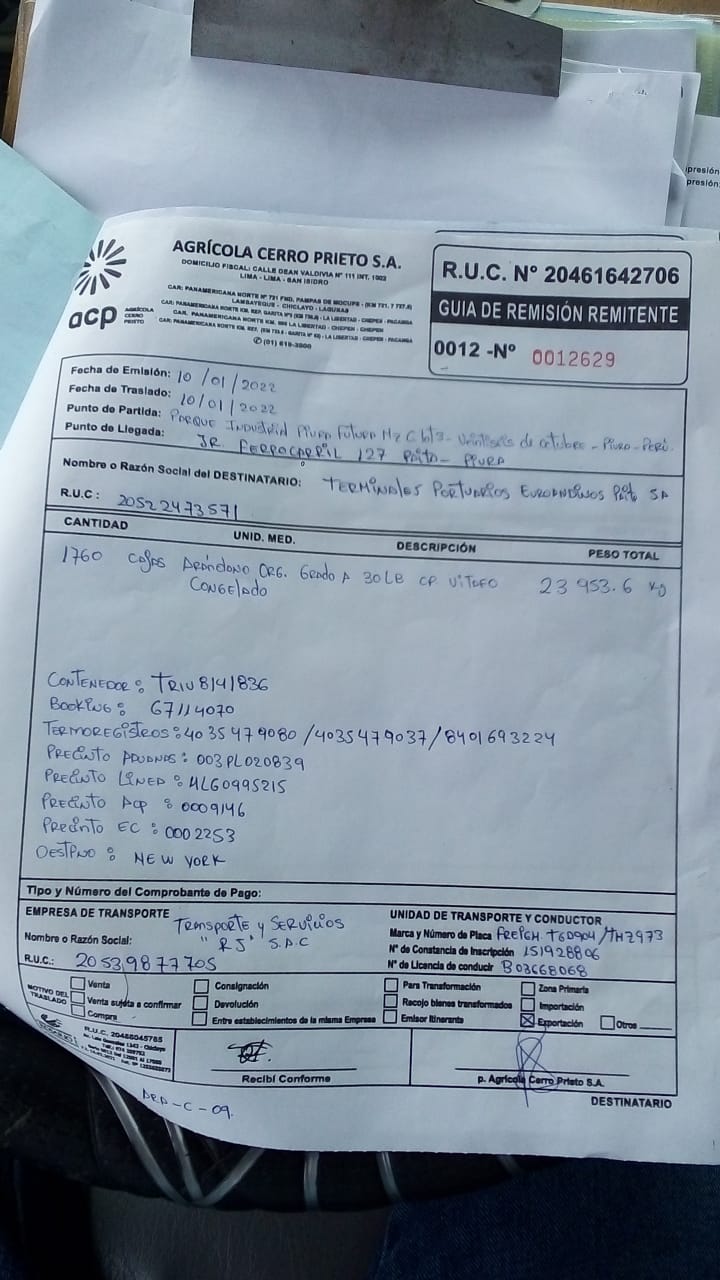 presión
presión:
acp AGRÍCOLA CERRO PRIETO
AGRÍCOLA CERRO PRIETO S.A.
DOMICILIO FISCAL: CALLE DEAN VALDIVIA Nº 111 INT. 1003
LIMA - LIMA - SAN ISIDRO
CAR: PANAMERICANA NORTE Nº 721 FND. PAMPAS DE MOCUPE - (KM 721. Y 727.5)
LAMBAYEQUE - CHICLAYO - LAGUNAS
LA LIBERTAD - CHEPEN - PACANGA
CAR. PANAMERICANA NORTE KM. LA LIBERTAD - CHEPEN - CHEPEN
LA LIBERTAD - CHEPEN - PACANGA
(01) 619-3900
R.U.C. Nº 20461642706
GUIA DE REMISIÓN REMITENTE
0012 -Nº 0012629
Fecha de Emisión: 10/01/2022
Fecha de Traslado: 10/01/2022
Punto de Partida: PARQUE Industrial Piura Futura Mz C - Veintiseis de octubre - Piura - Perú.
Punto de Llegada: JR. FERROCARRIL 127 Paita - PIURA
Nombre o Razón Social del DESTINATARIO: TERMINALES PORTUARIOS EUROANDINOS Paita SA
R.U.C: 20522473571
CANTIDAD UNID. MED. DESCRIPCIÓN PESO TOTAL
1760 Cajas ARÁNDANO ORG. Grado A 30 LB CP 23 953.6 Kg
CONGELADO
CONTENEDOR: TRIU 8141836
Booking: 67114070
TERMOREGISTROS: 4035479080 / 4035479037 / 8401693224
PRECINTO ADUANAS: 003PL020839
PRECINTO LINEA: 0995215
PRECINTO ACP: 0009146
PRECINTO EC: 0002253
DESTINO: NEW YORK
Tipo y Número del Comprobante de Pago:
EMPRESA DE TRANSPORTE
Transporte y SERVICIOS
Nombre o Razón Social: "RJ" S.A.C
R.U.C.: 20539877705
UNIDAD DE TRANSPORTE Y CONDUCTOR
Marca y Número de Placa T6D904 / TH2973
Nº de Constancia de Inscripción 151928806
Nº de Licencia de conducir B03668068
MOTIVO DEL TRASLADO
Venta
Venta sujeta a confirmar
Compra
Consignación
Devolución
Entre establecimientos de la misma Empresa
Para Transformación
Recojo bienes transformados
Emisor Itinerante
Zona Primaria
Importación
Exportación
Otros
R.U.C. 20488045785
Recibí Conforme
p. Agrícola Cerro Prieto S.A.
DESTINATARIO
- C - 09.